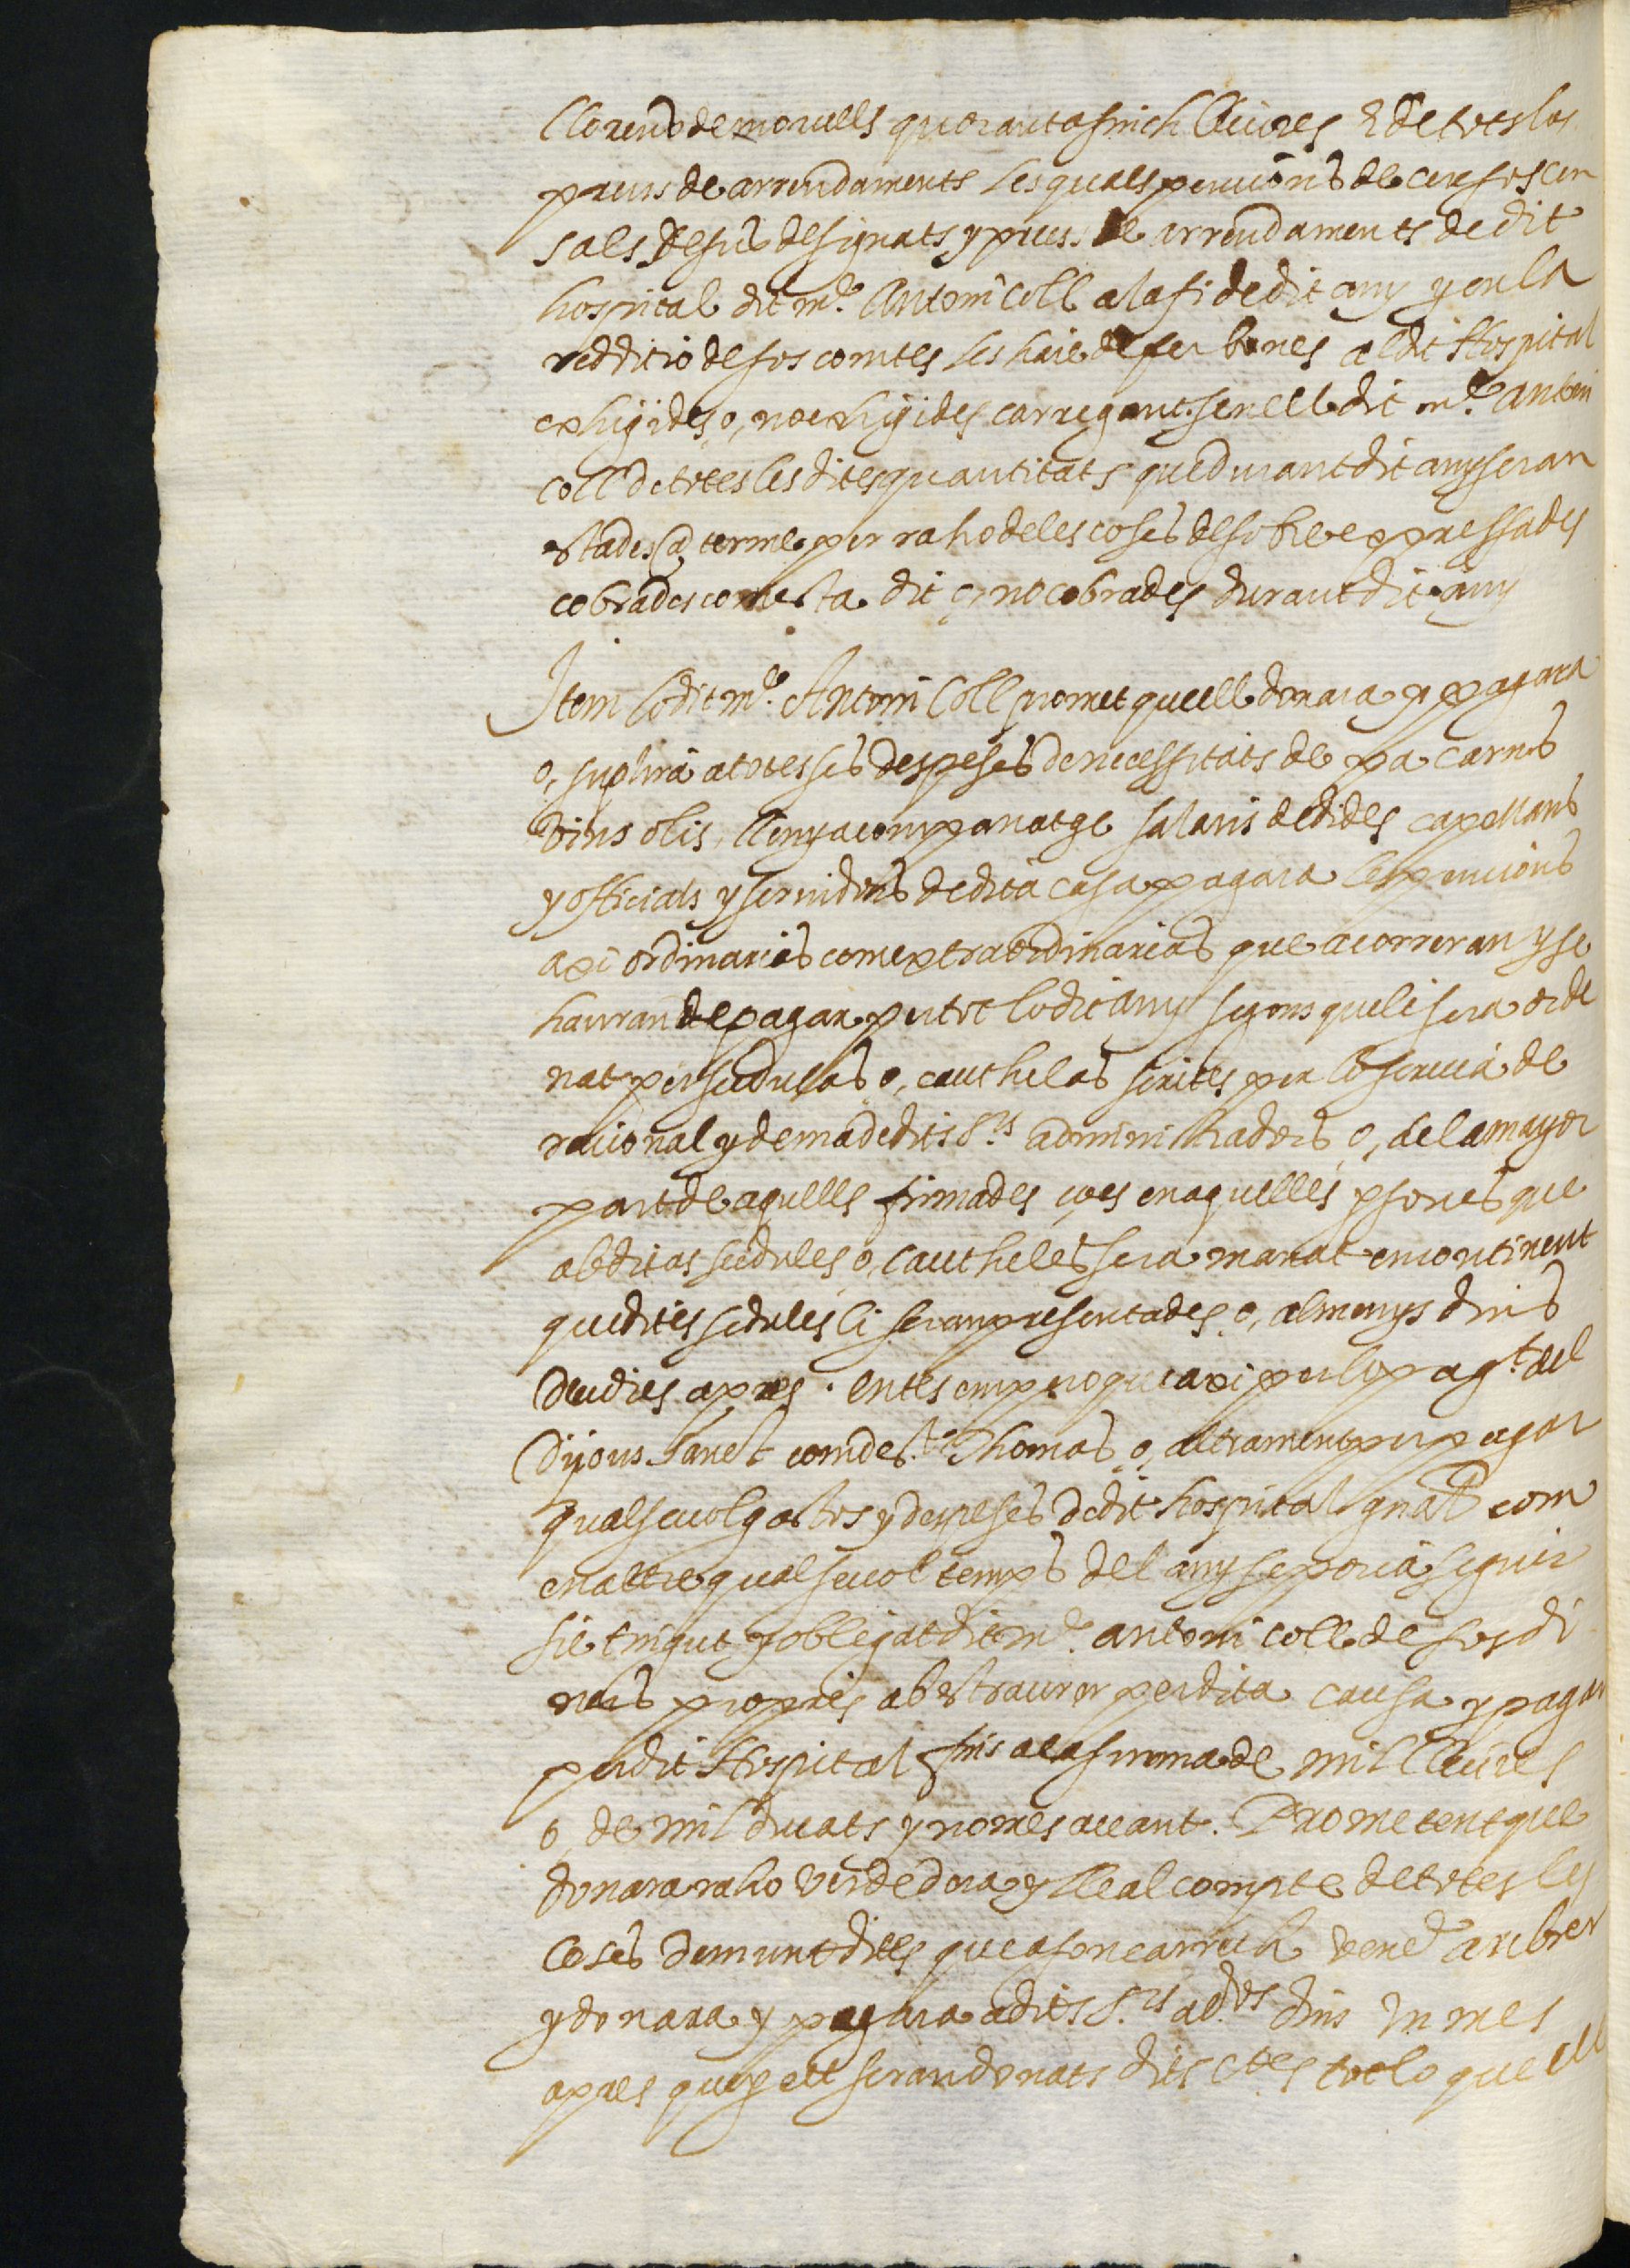 Llorens de moruells quoranta sinch lliures E de totes los
preus de arrendaments les quals pencions de cens sos cen
sals desus designats y preus de arrendaments de dit
hospital dit m.º Antoni Coll a la fi de dit any y en la
redditio de sos comtes les haie de fer bones a dit Hospital
exhigides o, no exhigides carregantse en ell dit m.º antoni
coll de totes les dites quantitats que durant dit any seran
estades a terme per raho de les coses desobre expressades
cobrades com esta dit o, no cobrades durant dit any
Item lo dit m.º Antoni Coll promet que ell donara y pagara
o, suplira a totes ses despeses de necessitats de pa carns
vins olis, llenya companatge salaris de dides capellans
y officials y seruidors de dita casa pagara les pencions
axi ordinarias com extraordinarias que acorreran y se
hauran de pagar per tot lo dit any segons que li sera orde
nat per sedulas o, cauthelas scrites per lo scriua de
racional y de ma de dits S.rs administradors o, de la mayor
part de aquells firmades ço es en aquelles psones que
ab ditas sedules o, cautheles sera manat encontinent
que dites sedules li seran presentades o, almenys dins
deu dies apres. entes empero que axi per lo pag.t del
Dijous Sanct com de S.t Thomas o, altrament per pagar
qualseuol gastos y despeses de dit hospital gnal com
en altre qualseuol temps del any se poria seguir
sie tingut y obligat dit m.º antoni coll de sos di
ners propris abestraurer per dita causa y pagar
per dit Hospital fins a la summa de mil lliures
o, de mil ducats y no mes auant. Prometent que
donara raho verdedera y lleal compte de totes les
coses demunt dites que a son carrech vend.ᵃⁿ a rebrer
y donara y pagara a dits S.rs ad.ors dins vn mes
apres que p ell seran donats dits ctes tot lo que ell